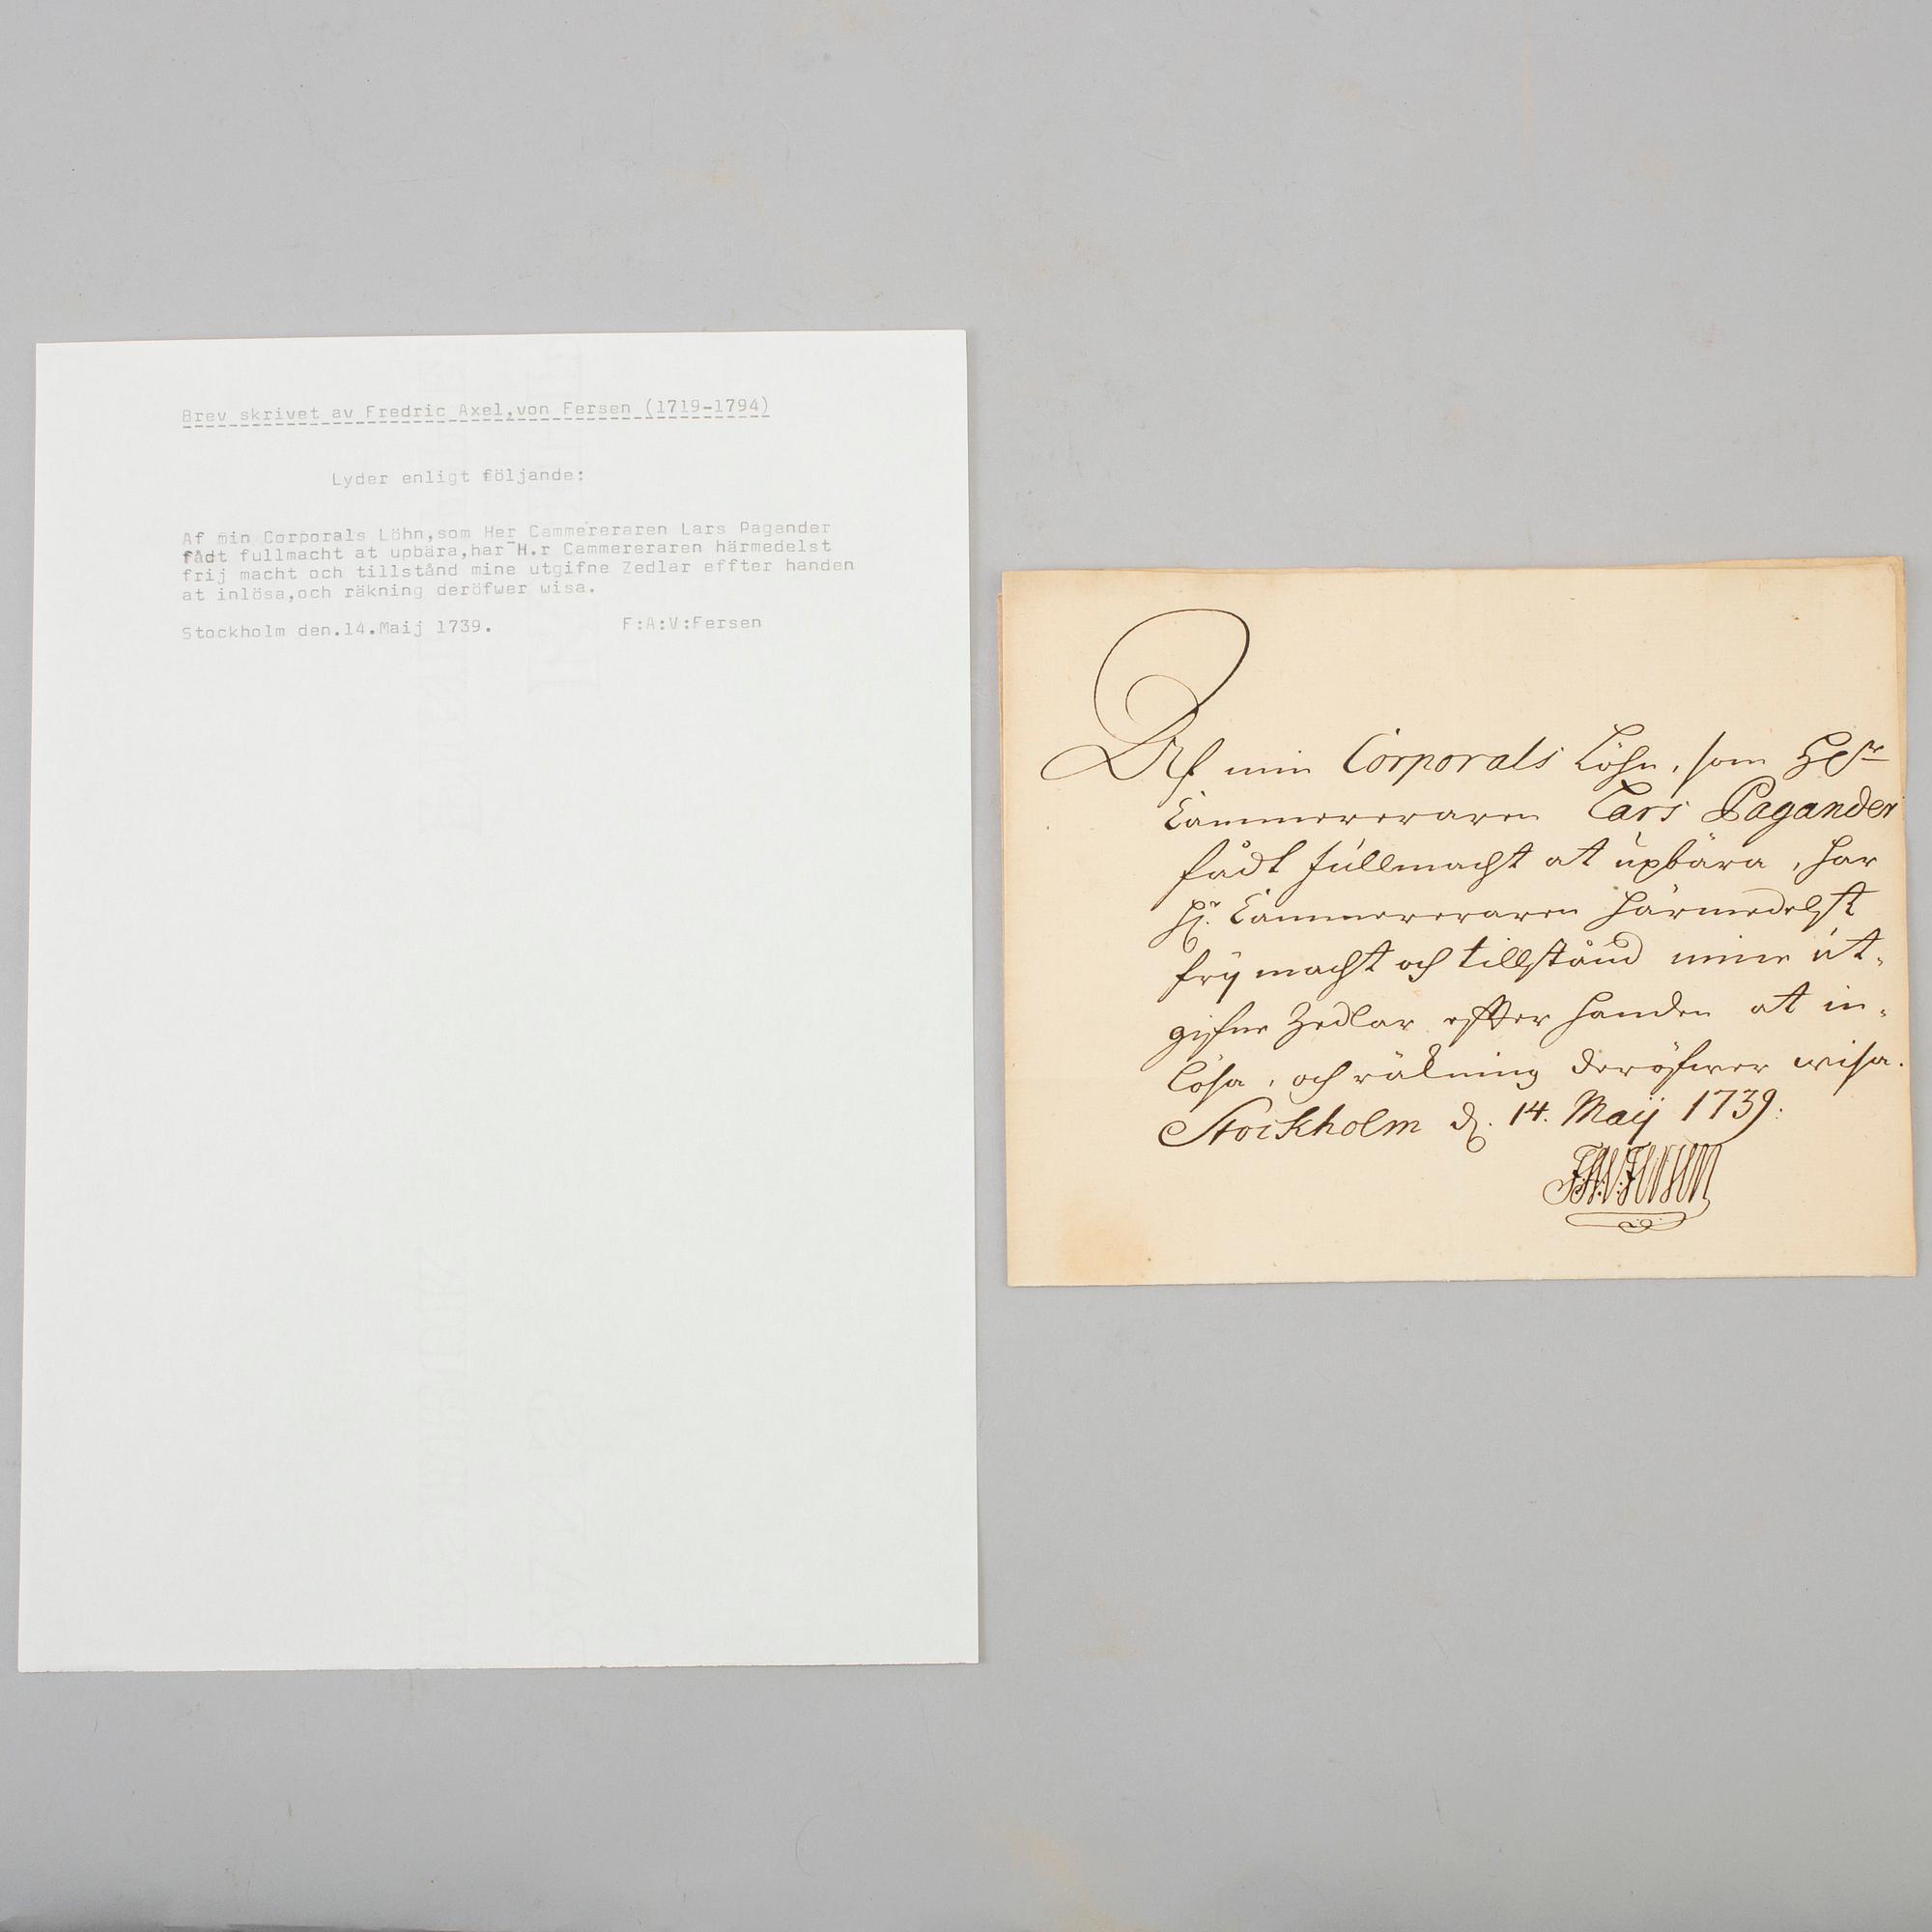 Brev skrivet av Fredric Axel,von Fersen (1719-1794)
Lyder enligt följande:
Af min Corporals Löhn,som Her Cammereraren Lars Pagander
fådt fullmacht at upbära,har H.r Cammereraren härmedelst
frij macht och tillstånd mine utgifne Zedlar effter handen
at inlösa,och räkning deröfwer wisa.
Stockholm den.14.Maij 1739. F:A:V:Fersen
Af min Corporals Löhn, som Her
Cammereraren Lars Pagander
fådt fullmacht at upbära, har
Hr. Cammereraren härmedelst
frij macht och tillstånd mine ut-
gifne Zedlar effter handen at in-
lösa, och räkning deröfwer wisa.
Stockholm d. 14. Maij 1739.
F:A:V:Fersen